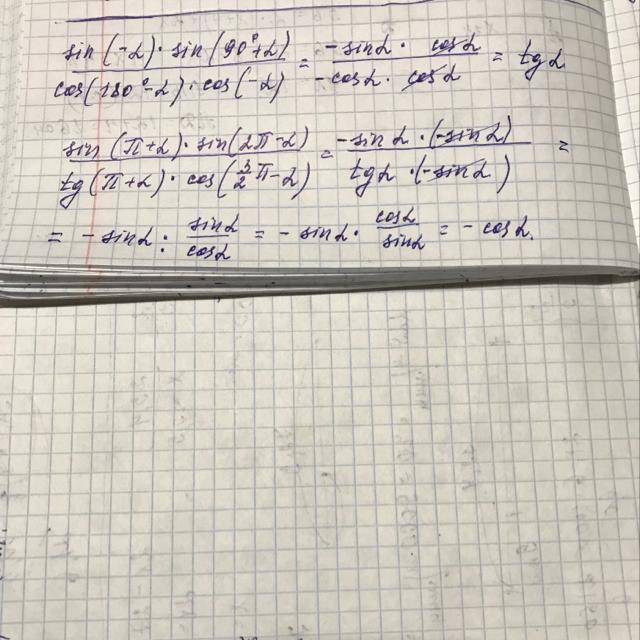 sin(-α)·sin(90°+α) / cos(180°-α)·cos(-α) = -sinα·cosα / -cosα·cosα = tgα
sin(π+α)·sin(2π-α) / tg(π+α)·cos(3/2π-α) = -sinα·(-sinα) / tgα·(-sinα) =
= -sinα : sinα/cosα = -sinα·cosα/sinα = -cosα.